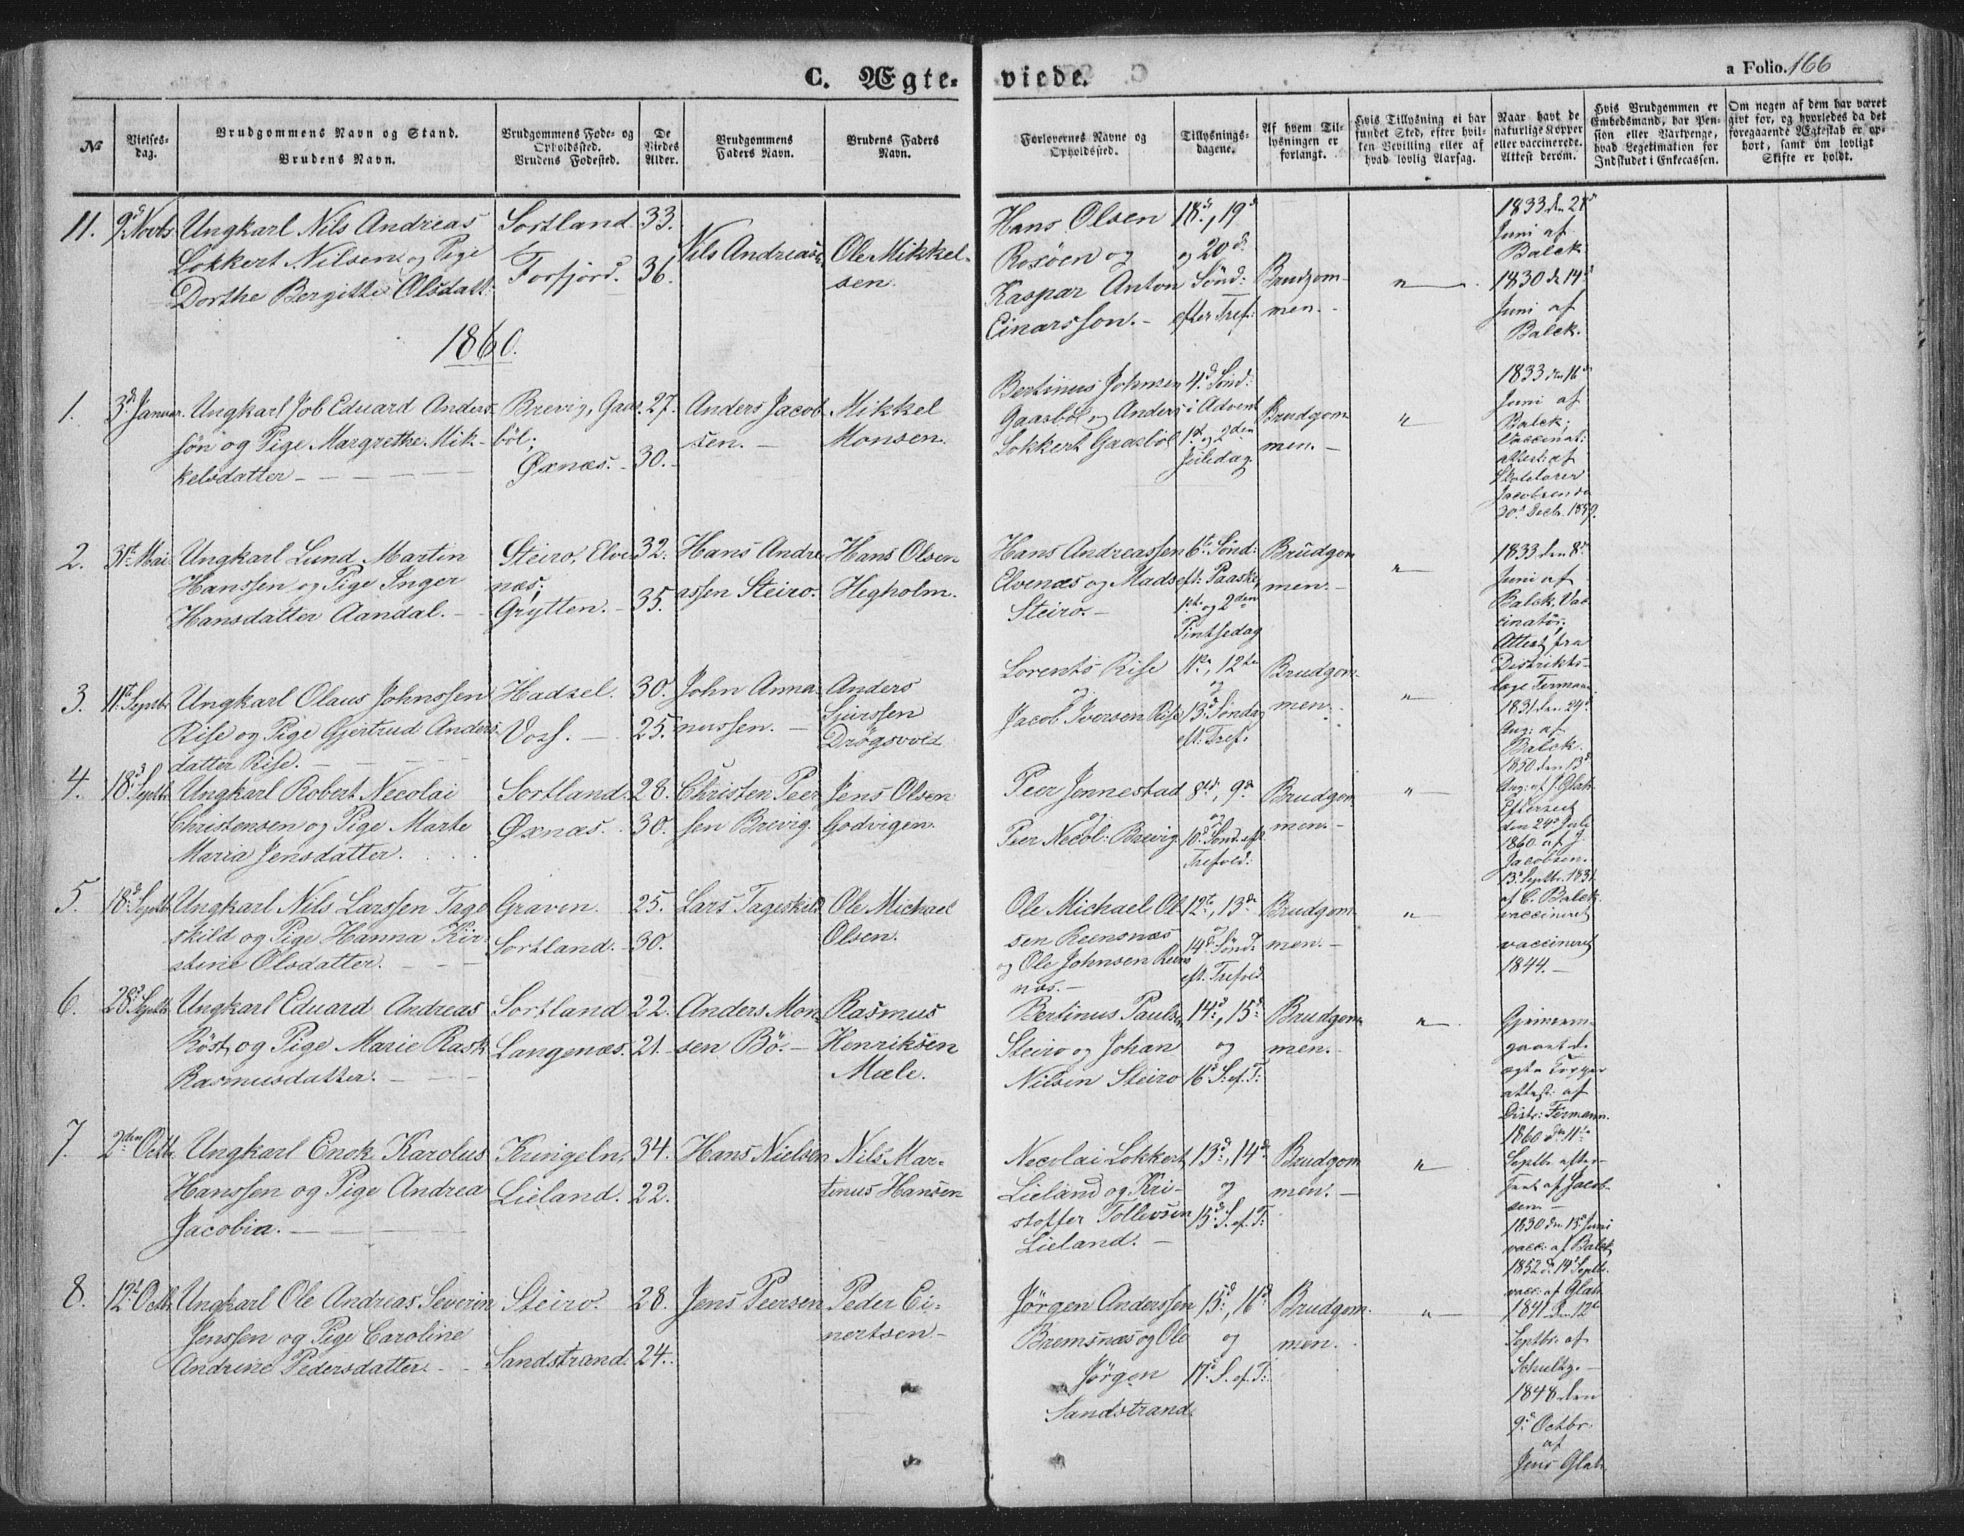 C. Ægte-
viede.
a Folio. 166
№
Vielses-
dag.
Brudgommens Navn og Stand.
Brudens Navn.
Brudgommens Føde- og
Opholdssted.
Brudens Fødested.
De
Viedes
Alder.
Brudgommens
Faders Navn.
Brudens Faders
Navn.
Forlovernes Navne og
Opholdssted.
Tillysnings-
dagene.
Af hvem Til-
lysningen er
forlangt.
Hvis Tillysning ei har
fundet Sted, efter hvil-
ken Bevilling eller af
hvad lovlig Aarsag.
Naar havt de
naturlige Kopper
eller vaccinerede.
Attest derom.
Hvis Brudgommen er
Embedsmand, har Pen-
sion eller Vartpenge,
hvad Legetimation for
Indskudet i Enkecassen.
Om nogen af dem har været
givt før, og hvorledes da det
foregaaende Ægteskab er op-
hørt, samt om lovligt
Skifte er holdt.
11.
9d Novbr
Ungkarl Nils Andreas
Lokkert Nilsen og Pige
Dorthe Bergitte Olsdatt:
Sortland.
Forfjord.
33.
36.
Nils Andreas:
Ole Mikkel-
sen.
Hans Olsen
Rosøen og
Kaspar Anton
Einarsson.-
18d, 19d
og 20d
Sønd:
efter Tref:
Brudgom-
men.-
"
1833 den 28d
Juni af
Balck.
1830 d 14d
Juni af
Balck.
1860.
1.
3d Januar.
Ungkarl Job Eduard Anders-
søn og Pige Margrethe Mik-
kelsdatter -
Brevig, Gaas-
böl;
Øxnæs.-
27.
30.-
Anders Jacob
sen.-
Mikkel
Monsen.
Bertinus Johnsen
Gaasböl og Anders
Lokkert Gaasböl
4d Sønd:
i Advent
1st og 2den
Juledag
Brudgom
men.-
"
1833 den 16d
Juni af
Balck;
Vaccinat:
attest af
Jacobsen d
30d Decb. 1859.
2.
31t Mai
Ungkarl Lund Martin
Hanssen og Pige Inger
Hansdatter Aandal.-
Steiro, Elve
næs;
Grytten.-
32.
35.
Hans Andre
assen Steiro.
Hans Olsen
Hegholm.
Hans Andreassen
Elvenæs og Mads
Steiro.-
6te Sønd:
eft: Paaske,
1st og 2den
Pintsedag
Brudgom
men.-
"
1833 den 8d
Juni af
Balck. Vac-
cinatør;
Attest fra
Distrikts-
læge Fermann.
3.
11te Septbr
Ungkarl Olaus Johnssen
Rise og Pige Gjertrud Anders
datter Rise.-
Hadsel.
Voss.-
30.
25.
John Anna-
nussen.-
Anders
Drøgsvold
Lorents Rise
og
Jacob Iversen Rise
11te, 12te
og
13d Søndag
eft. Tref.
Brudgom-
men.-
"
1831 den 24d
Aug: af
Balck.
1850 den 13d
Aug: af J. Glak
4.
18d Septbr
Ungkarl Robert Necolai
Christensen og Pige Marte
Maria Jensdatter.
Sortland.
Øxnæs.
28.
30.
Christen Peer
sen Brevig.
Jens Olsen
Godvigen.
Peer Jennestad
og
Peer Necol: Brevig
8de, 9de
og
10d Sønd. eft.
Trefold:
Brudgom
men.-
"
den 24d Juli
1860 af J.
Jacobsen.
13d Septbr. 1831
af C. Balck
5.
18d Septbr
Ungkarl Nils Larssen Tage
skild og Pige Hanna Kir-
stine Olsdatter.
Graven.
Sortland.-
25.
30.
Lars Tageskild
Ole Michael
Olsen.
Ole Michael Ol-
sen Reensnæs
og Ole Johnsen Reens
næs.-
12te, 13de
14d Sønd:
eft. Trefold
Brudgom-
men.-
"
vaccineret
vaccineret
1844.-
6.
28d Septbr
Ungkarl Eduard Andreas
Röst og Pige Marie Rask
Rasmusdatter.-
Sortland
Langenæs.
22.
21.-
Anders Mon-
sen Bö.-
Rasmus
Henriksen
Mæle.
Bertinus Paulsen
Steiro og Johan
Nilsen Steiro
14d, 15d
og
16d S. ef. T:
Brudgom-
men.-
"
Gjennem-
gaaet de
ægte Kopper
attest: af
Distr: Fermann.
7.
2den Octbr
Ungkarl Enok Karolus
Hanssen og Pige Andrea
Jacobia.-
Kringeln,
Lieland.
34.
22.
Hans Nielsen
Nils Mar-
tinus Hansen
Necolai Lokkert
Lieland og Kri-
stoffer Tollevsen
Lieland.-
13d, 14d
og
15d S. ef. T:
Brudgom
men.-
"
1860 den 11te
Septbr. efter
af Jacob-
sen.-
1830 den 15d Juni
vacc: af Balck
1852 d. 14d Septbr.
vacc: af Glak
8.
12te Octbr
Ungkarl Ole Andreas Severin
Jenssen og Pige Caroline
Andrine Pedersdatter.-
Steiro.
Sandstrand.
28.
24.
Jens Peersen
Peder Ei-
nertsen.-
Jörgen Anderssen
Bremsnæs og Ole
Jörgen
Sandstrand.
15d, 16d
og
17d S. ef. T:
Brudgom.
men.
"
1841 d. 12te
Septbr. af
Schultz.-
1848 den
9d Octbr.
af
Jens Glak